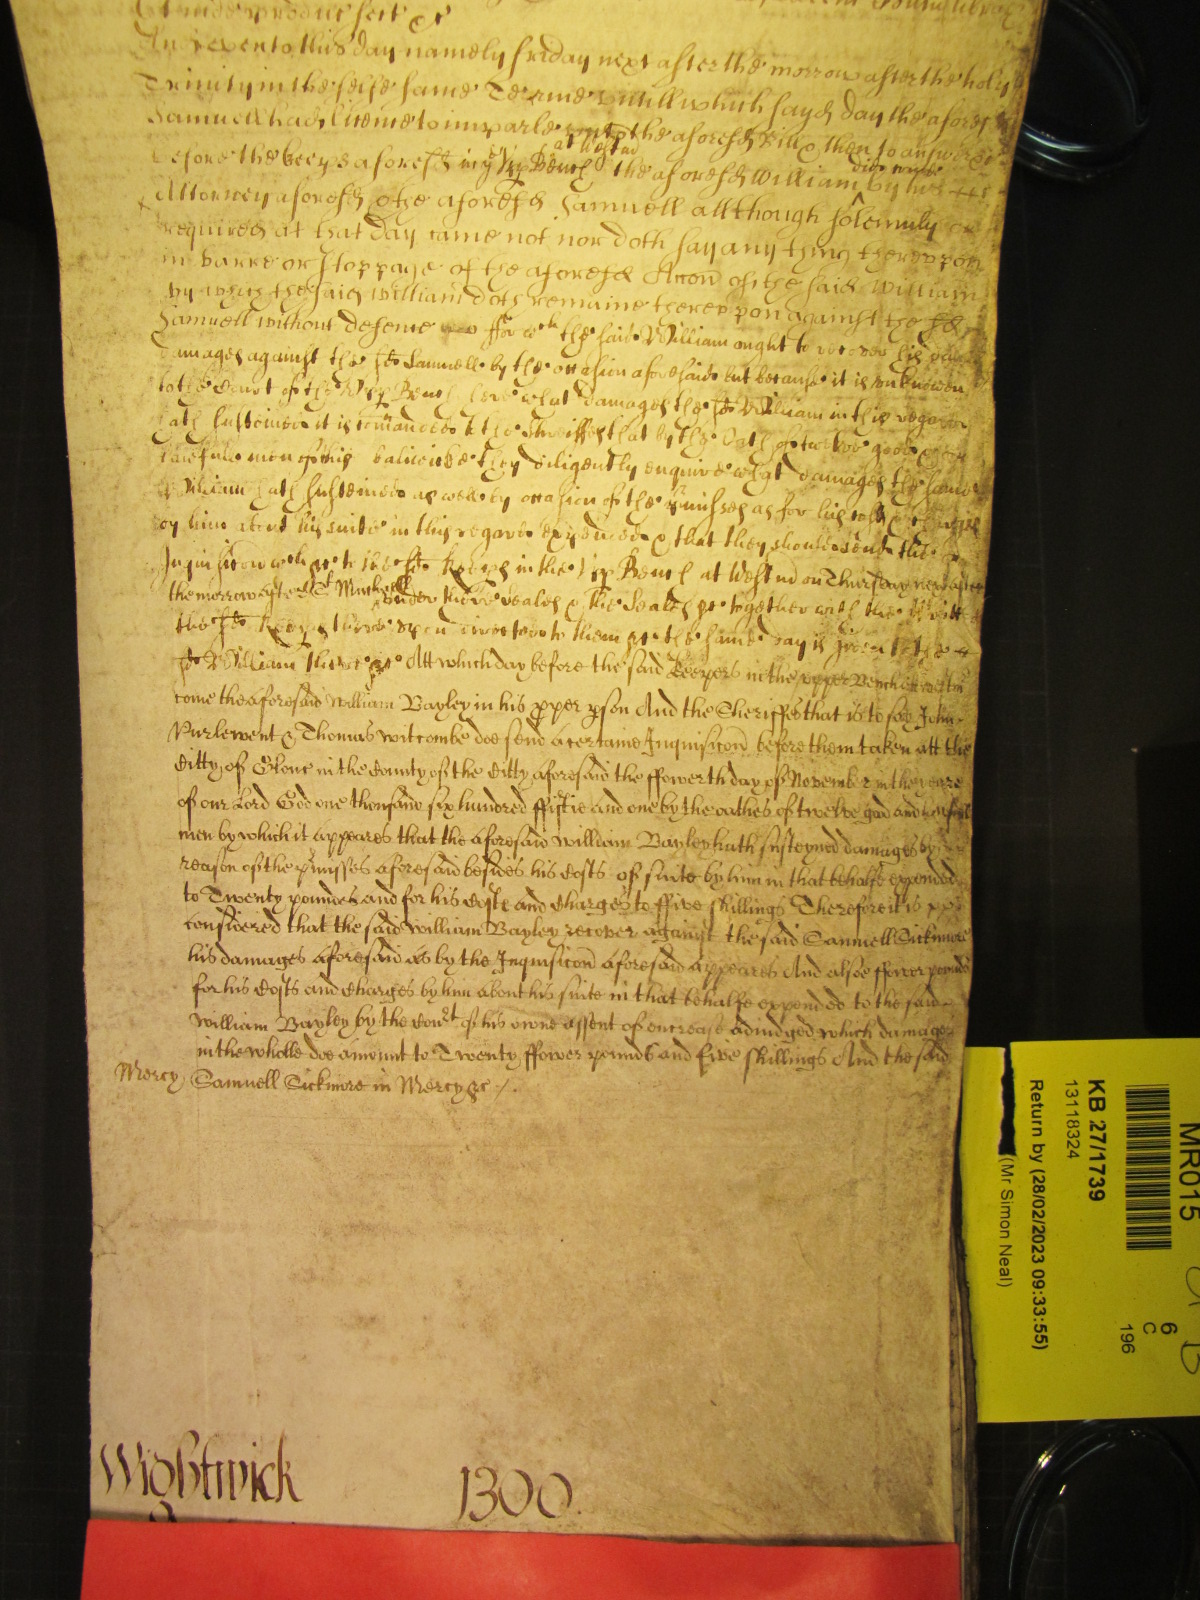 in this day namely Friday next after the morrow after the holy
Trinity in the selfe same Terme untill which sayd day the aforesd
Samuell had licence to imparle unto the aforesd Bill & then to answere
at Westmr
did come
before the keepers aforesd in ye upp Bench the aforesd William by his
Attorney aforesd & the aforesd Samuell allthough solemnly
required at that day came not nor doth say any thing thereuppon
in barre or stoppage of the aforesd Accon of the said William
by which the said William doth remaine thereuppon against the sd
Samuell without defence ffor wch the said William ought to recover his
damages against the sd Samuell by the occasion aforesaid but because it is unknowen
to the Court of the Upp Bench here what damages the sd William in this regard
hath susteined it is comanded to the Sheriffes that by the oath of twelve good &
lawfull men of his baliwicke they diligently enquire what damages the same
William hath susteined as well by occasion of the pmisses as for his costs & charges
by him about his suite in this regard expended & that they should send the
Inquisicon wch &c to the sd keeps in the Upp Bench at Westmr on Thursday next after
the morrow after St Martin under there seales & the Seales &c together with the writt
the sd keeps there upon directed to them &c the same day is given to the
sd William there &c Att which day before the said keepers in the upper Bench att Westmr
come the aforesaid William Bayley in his pper pson And the Sheriffes that is to say John
Purlewent & Thomas Witcombe doe send a certaine Inquisicon before them taken att the
Citty of Glouc in the County of the Citty aforesaid the ffowerth day of November in the yeare
of our Lord God one thousand six hundred ffiftie and one by the oathes of twelve good and lawfull
men by which it appeares that the aforesaid William Bayley hath susteyned damages by
reason of the pmisses aforesaid besides his Costs of suite by him in that behalfe expended
to Twenty pounds and for his Costs and Charges to ffive shillings Therefore it is
considered that the said William Bayley recover against the said Samuell Sickmore
his damages aforesaid as by the Inquisicon aforesaid appeares And alsoe ffower pounds
for his Costs and Charges by him about his suite in that behalfe expended to the said
William Bayley by the Court of his owne assent of encrease adiudged which damages
in the wholle doe amount to Twenty ffower pounds and five shillings And the said
Mercy Samuell Sickmore in Mercy &c /.
Wightwick 1300
MR015
6
C
196
KB 27/1739
13118324
Return by (28/02/2023 09:33:55)
(Mr Simon Neal)